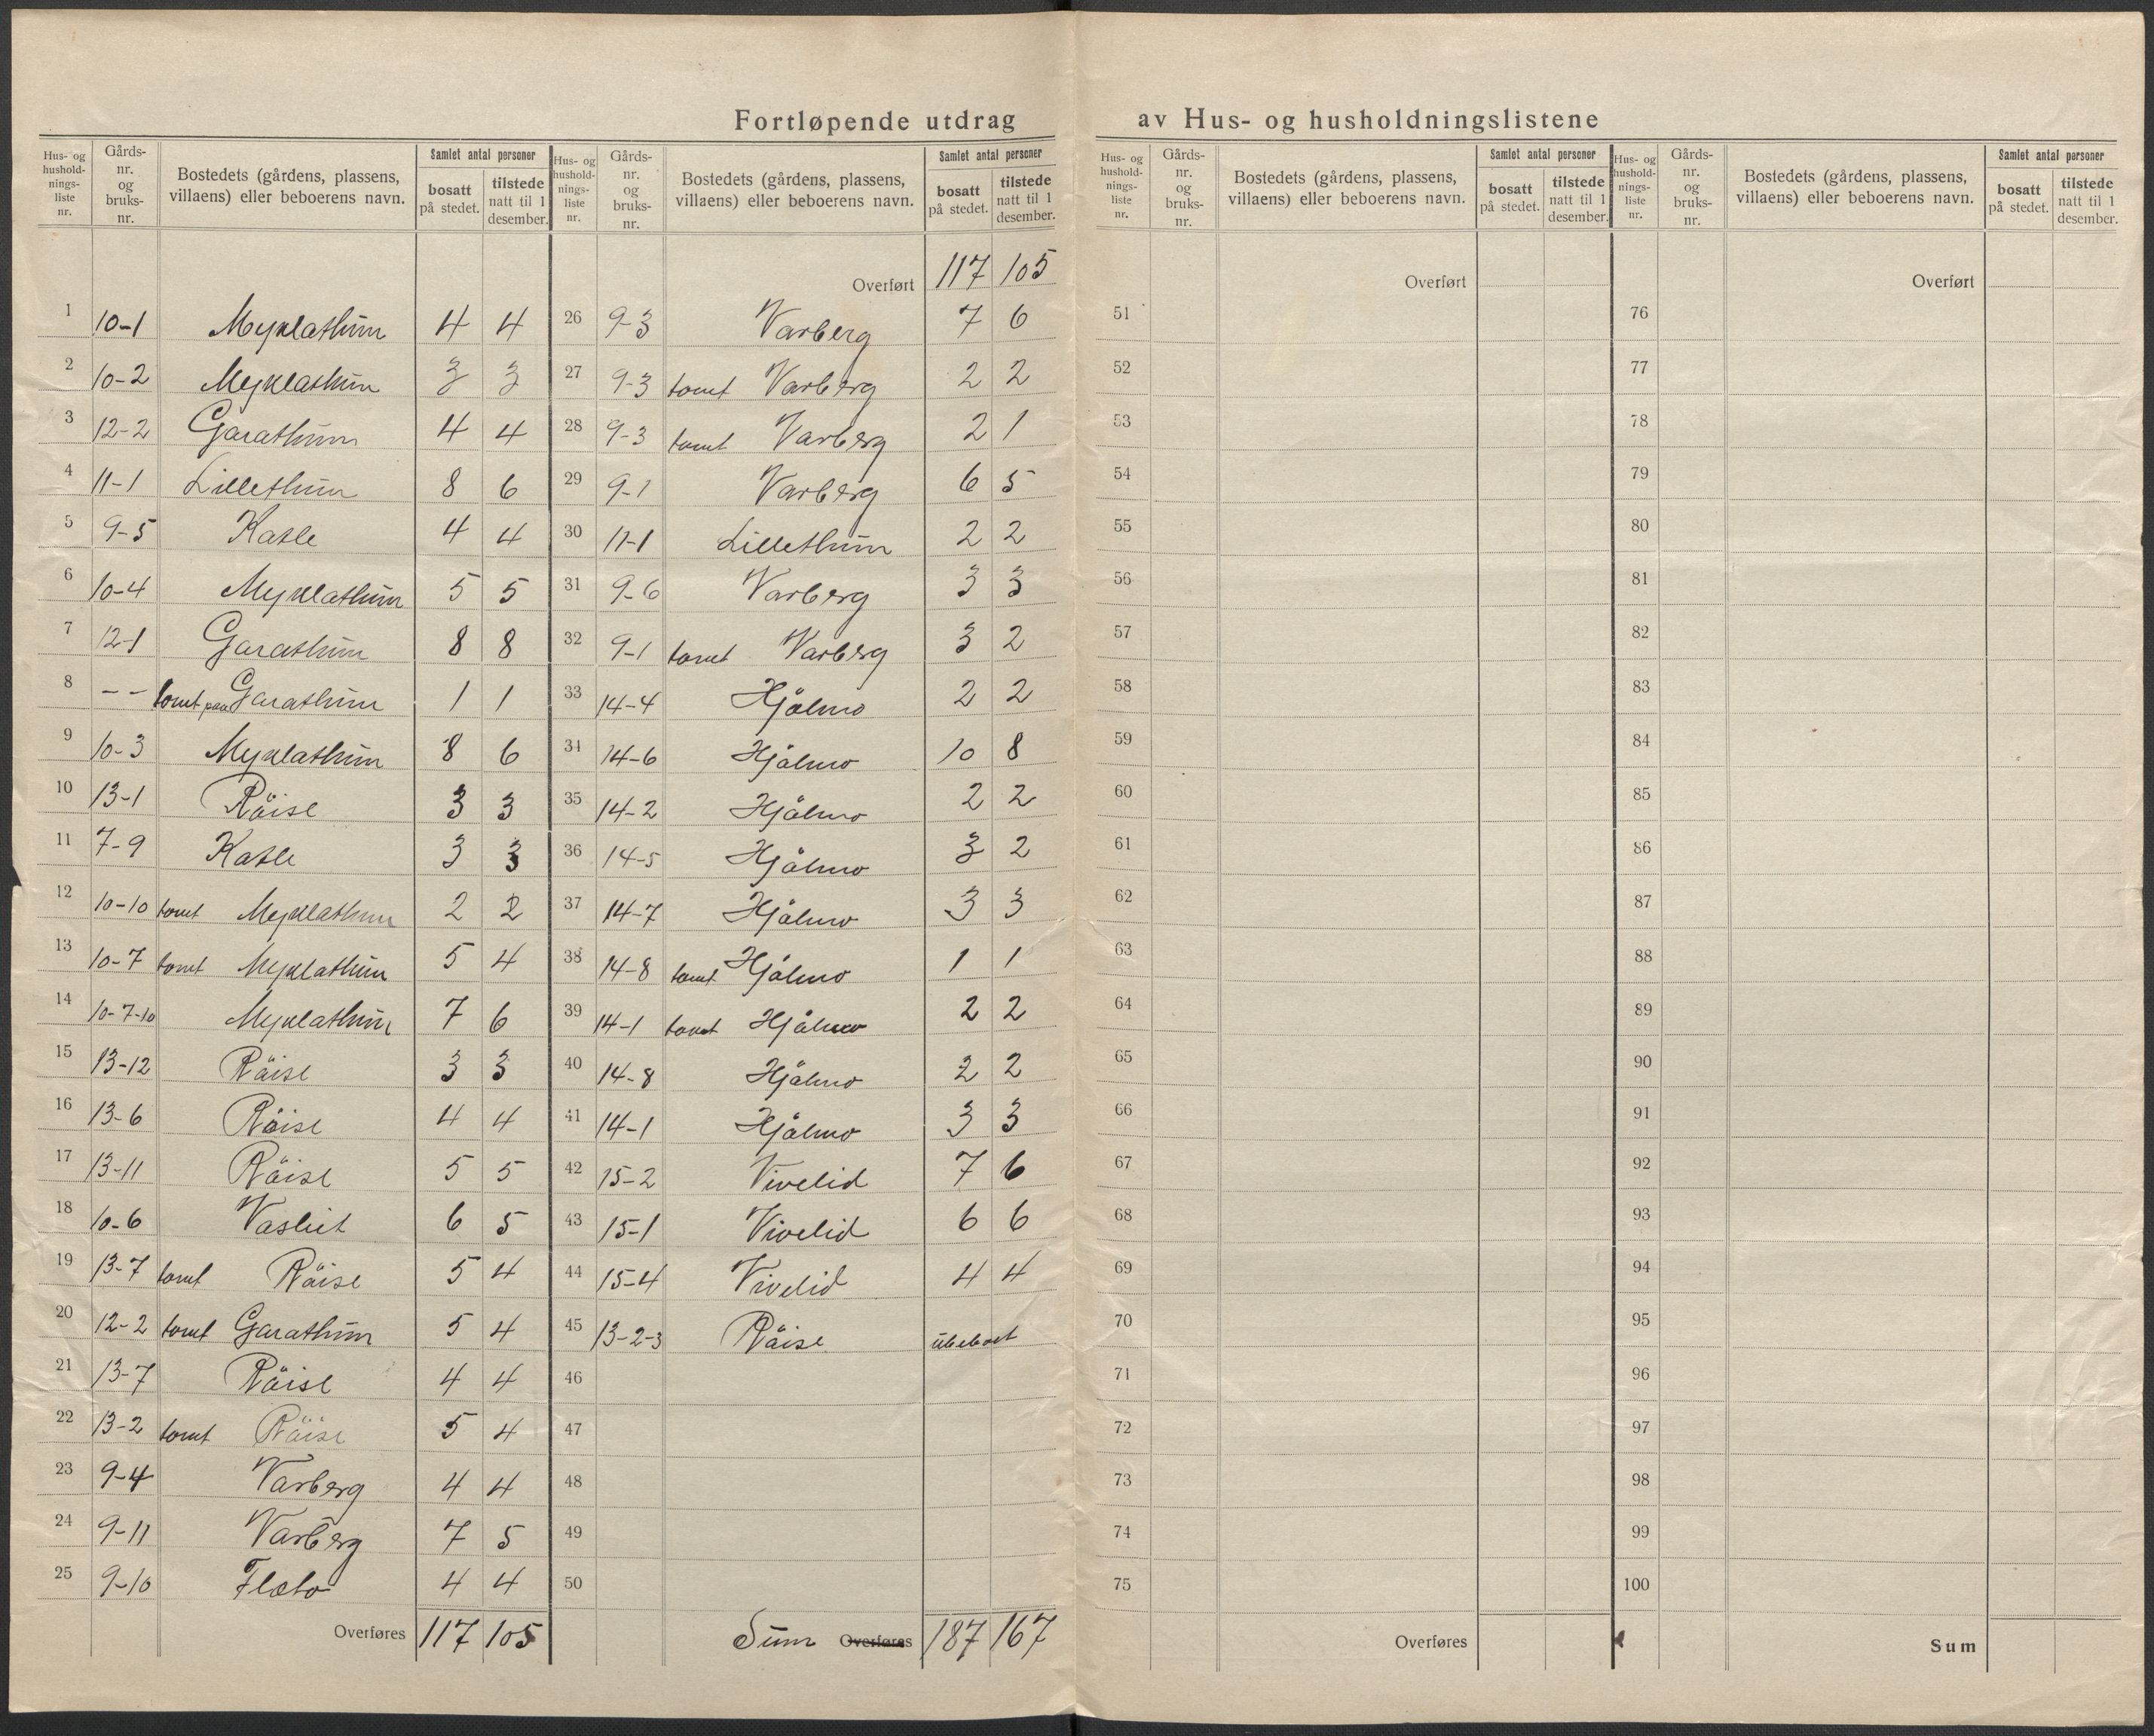 Fortløpende utdrag av Hus- og husholdningslistene
Hus- og hushold-nings-liste nr. Gårds-nr. og bruks-nr. Bostedets (gårdens, plassens, villaens) eller beboerens navn. Samlet antal personer bosatt på stedet. tilstede natt til 1 desember.
1 10-1 Myklathun 4 4
2 10-2 Myklathun 3 3
3 12-2 Garathun 4 4
4 11-1 Lillethun 8 6
5 9-5 Katle 4 4
6 10-4 Myklathun 5 5
7 12-1 Garathun 8 8
8 - - tomt paa Garathun 1 1
9 10-3 Myklathun 8 6
10 13-1 Röise 3 3
11 7-9 Katle 3 3
12 10-10 tomt Myklathun 2 2
13 10-7 tomt Myklathun 5 4
14 10-7-10 Myklathun 7 6
15 13-12 Röise 3 3
16 13-6 Röise 4 4
17 13-11 Röise 5 5
18 10-6 Vaslid 6 5
19 13-7 tomt Röise 5 4
20 12-2 tomt Garathun 5 4
21 13-7 Röise 4 4
22 13-2 tomt Röise 5 4
23 9-4 Varberg 4 4
24 9-11 Varberg 7 5
25 9-10 Flöto 4 4
Overføres 117 105
Hus- og hushold-nings-liste nr. Gårds-nr. og bruks-nr. Bostedets (gårdens, plassens, villaens) eller beboerens navn. Samlet antal personer bosatt på stedet. tilstede natt til 1 desember.
Overført 117 105
26 9-3 Varberg 7 6
27 9-3 tomt Varberg 2 2
28 9-3 tomt Varberg 2 1
29 9-1 Varberg 6 5
30 11-1 Lillethun 2 2
31 9-6 Varberg 3 3
32 9-1 tomt Varberg 3 2
33 14-4 Hjålmo 2 2
34 14-6 Hjålmo 10 8
35 14-2 Hjålmo 2 2
36 14-5 Hjålmo 3 2
37 14-7 Hjålmo 3 3
38 14-8 tomt Hjålmo 1 1
39 14-1 tomt Hjålmo 2 2
40 14-8 Hjålmo 2 2
41 14-1 Hjålmo 3 3
42 15-2 Vivelid 7 6
43 15-1 Vivelid 6 6
44 15-4 Vivelid 4 4
45 13-2-3 Röise ubeboet
46
47
48
49
50
Sum Overføres 187 167
Hus- og hushold-nings-liste nr. Gårds-nr. og bruks-nr. Bostedets (gårdens, plassens, villaens) eller beboerens navn. Samlet antal personer bosatt på stedet. tilstede natt til 1 desember.
Overført
51
52
53
54
55
56
57
58
59
60
61
62
63
64
65
66
67
68
69
70
71
72
73
74
75
Overføres
Hus- og hushold-nings-liste nr. Gårds-nr. og bruks-nr. Bostedets (gårdens, plassens, villaens) eller beboerens navn. Samlet antal personer bosatt på stedet. tilstede natt til 1 desember.
Overført
76
77
78
79
80
81
82
83
84
85
86
87
88
89
90
91
92
93
94
95
96
97
98
99
100
Sum